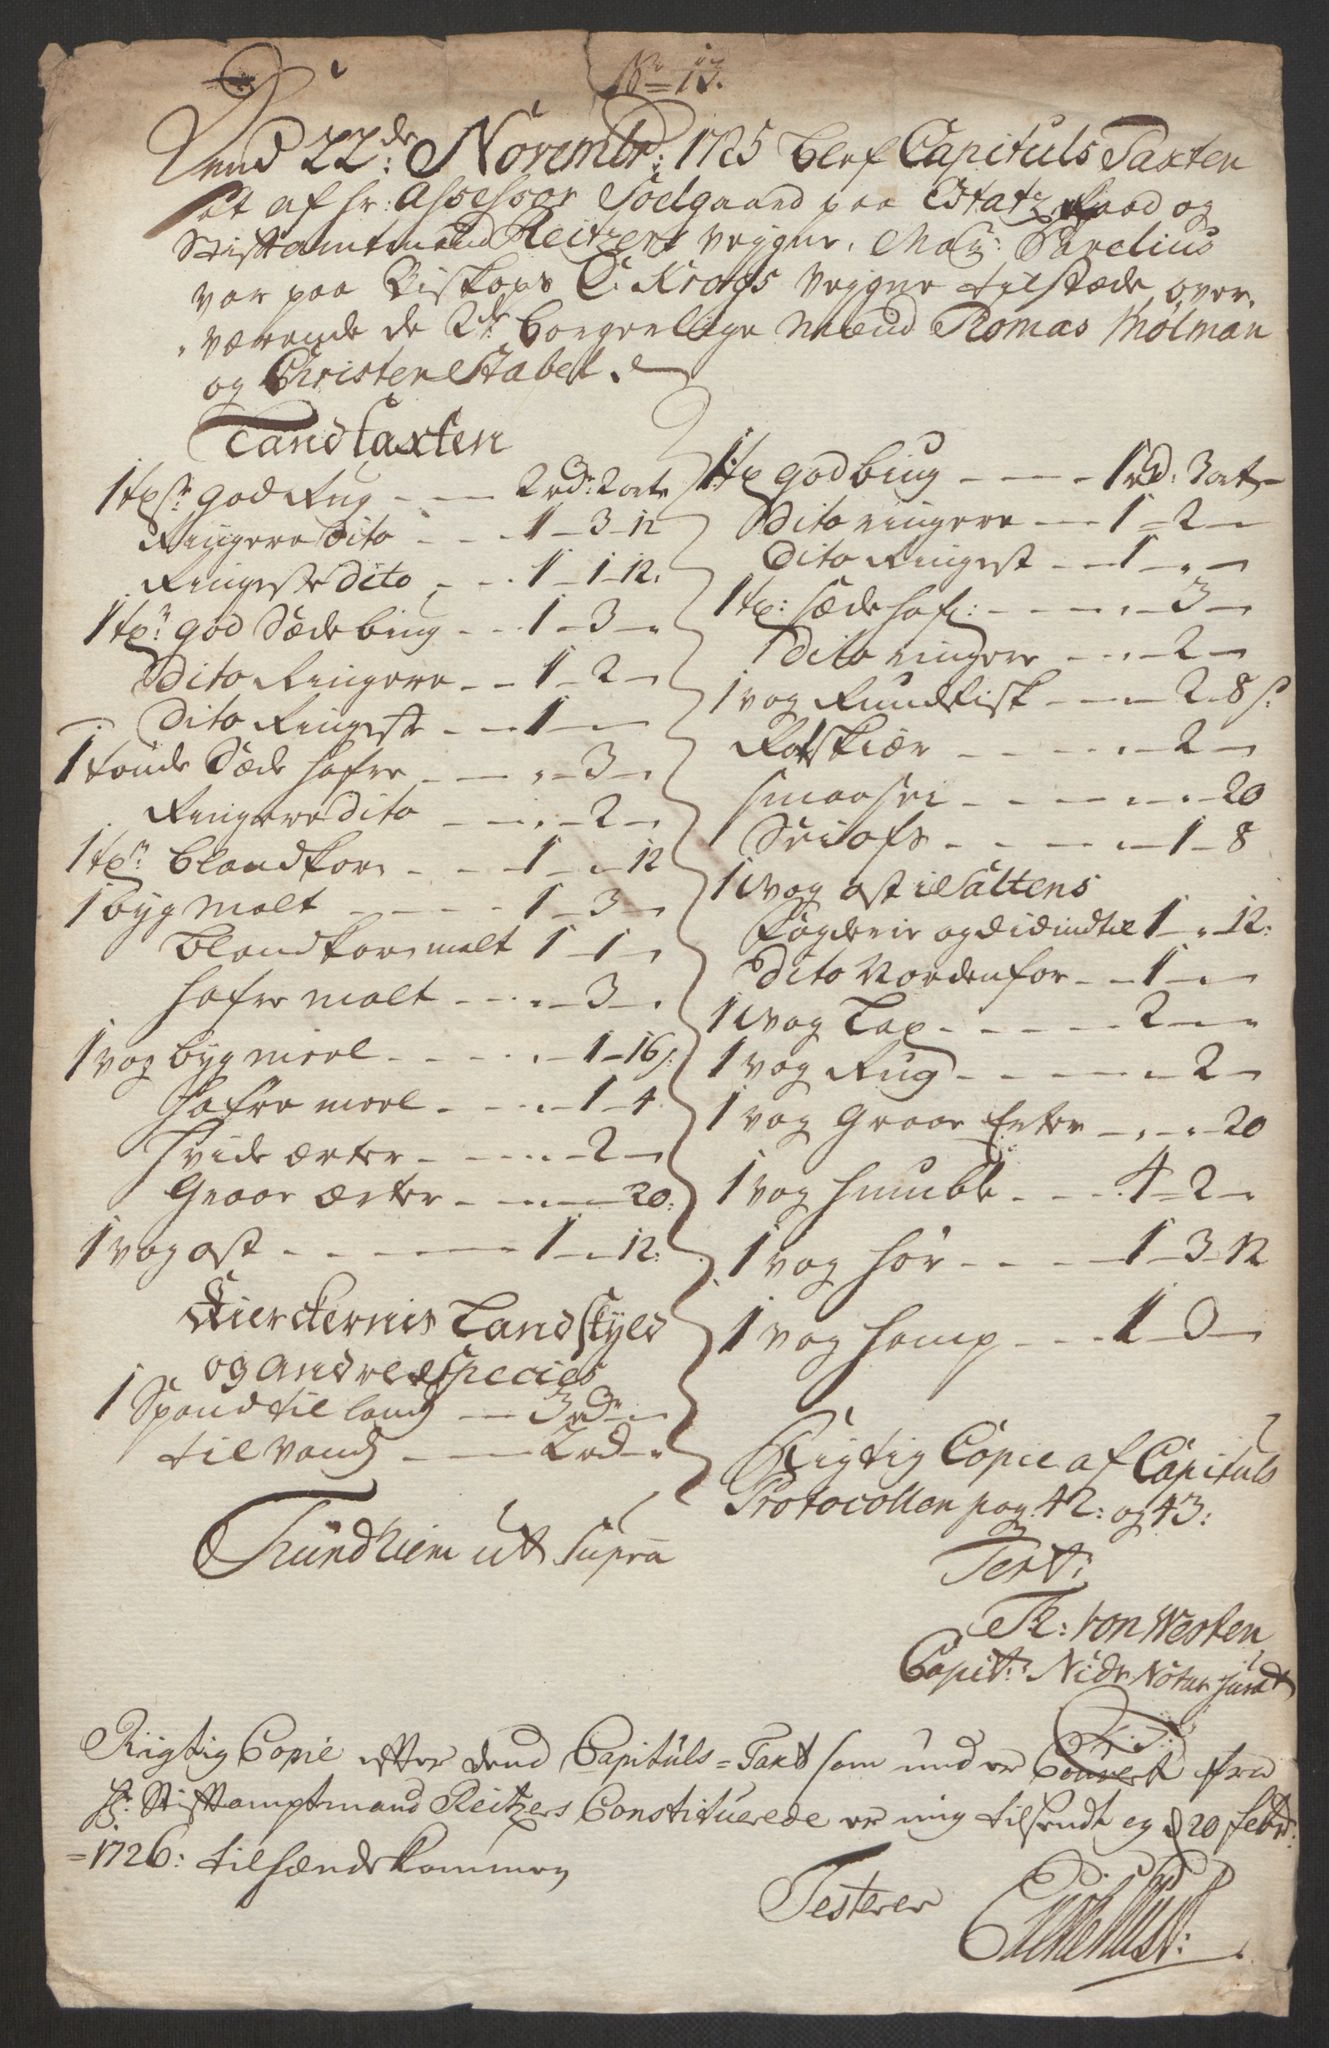 No 13.
Dend 22de: Novembr: 1725 blef Capituls Taxten
sat af hr: Assessor Soelgaard paa Etatz Raad og
Stiftamtmand Reitzers vegne, Mag: Parelius
var paa Biskops C: Krogs vegne tilstæde, over-
værende de 2de borgerlige Mænd Thomas Mölman
og Christen Stabel.
Landtaxten
1 tøn: god Rug - - 2 rdr: 2 ort
Ringere dito - - 1 - 3 - 12
Ringeste dito - - 1 - 1 - 12.
1 tøn: god Sæde biug - - 1 - 3 -
Dito Ringere - - 1 - 2 -
Dito Ringeste - - 1 -
1 tønde Sæde hafre - - - 3 -
Ringere dito - - - 2 -
1 tøn: blandkorn - - 1 - - 12
1 byg malt - - - 1 - 3 -
blandkorn malt 1 - 1 -
hafre malt - - - 3 -
1 vog byg meel - - - 1 - 16 s:
hafre meel - - - 1 - 4
Hvide ærter - - - 2 -
Graae ærter - - - 20.
1 vog ost - - - 1 - 12:
Kierckernis Landskyld
og andre Species
1 Spand til land - 3 rdr -
til vand - - 2 rd -
Trundhiem ut supra
1 tø god biug - - - 1 rd: 3 ort -
Dito ringere - - 1 - 2 -
Dito Ringest - - 1 - -
1 tø: sæde hafr: - - - 3 -
Dito ringere - - - 2 -
1 vog Rundfisk - - - 2 - 8 s:
Rotskiær - - - 2 -
smaa sei - - - - 20
Sei ofs - - - 1 - 8
1 vog ost i Saltens
Fogderie og did indtil 1 - - 12:
Dito Nordenfor - - 1 - -
1 vog Lax - - - 2 - -
1 vog Rug - - - 2 -
1 vog Graae Erter - - - 20
1 vog humble - - 4 - 2 -
1 vog hør - - - 1 - 3 - 12
1 vog hamp - - 1 - 3 -
Rigtig Copie af Capituls
Protocollen pag: 42: og 43:
Test:
Th: von Westen
Capit: Nidr Notar: Jurat
Rigtig Copie efter dend Capituls-Taxt som under Couvert fra
Hr: Stiftamptmand Reitzers Constituerede er mig tilsendt og d 20 Febr:
1726: tilhændekommen
Testerer